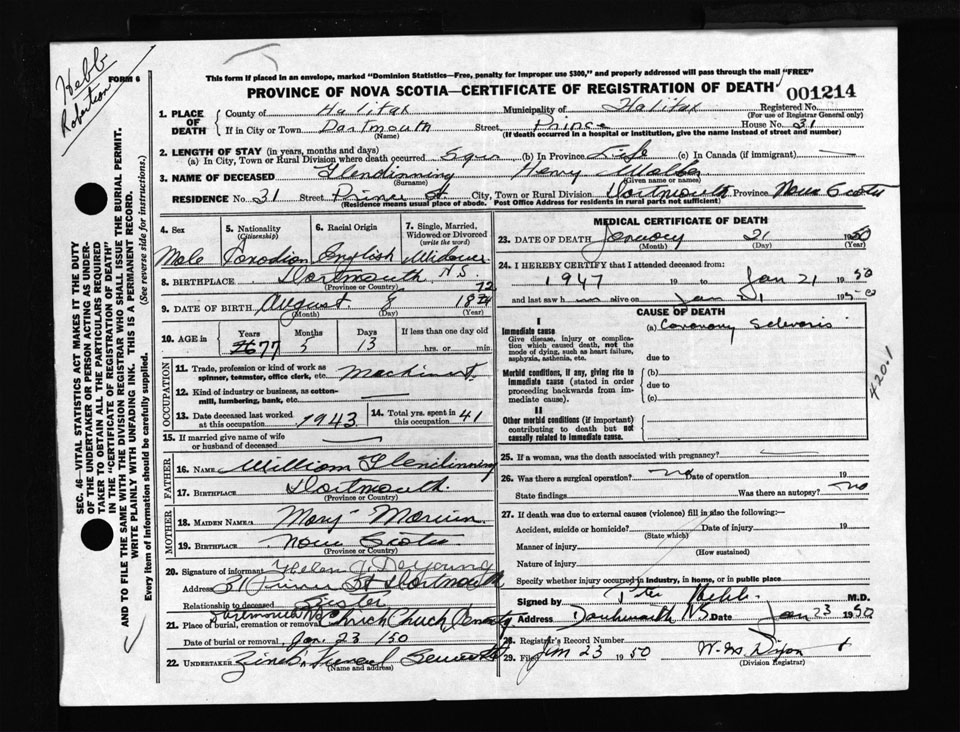 Hebb
Robertson
FORM 6
This form if placed in an envelope, marked "Dominion Statistics—Free, penalty for improper use $300," and properly addressed will pass through the mail "FREE"
PROVINCE OF NOVA SCOTIA—CERTIFICATE OF REGISTRATION OF DEATH 001214
1. PLACE OF DEATH
County of Halifax Municipality of Halifax Registered No.
(For use of Registrar General only)
If in City or Town Dartmouth Street Prince House No. 31
(Name) (If death occurred in a hospital or institution, give the name instead of street and number)
2. LENGTH OF STAY (in years, months and days)
(a) In City, Town or Rural Division where death occurred 5 yrs (b) In Province Life (c) In Canada (if immigrant) —
3. NAME OF DECEASED Glendinning Henry
(Surname) (Given name or names)
RESIDENCE No. 31 Street Prince St. City, Town or Rural Division Dartmouth Province Nova Scotia
(Residence means usual place of abode. Post Office Address for residents in rural parts not sufficient)
4. Sex 5. Nationality (Citizenship) 6. Racial Origin 7. Single, Married, Widowed or Divorced (write the word)
Male Canadian English Widower
8. BIRTHPLACE Dartmouth N.S.
(Province or Country)
72
9. DATE OF BIRTH August 8 1874
(Month) (Day) (Year)
10. AGE in Years Months Days If less than one day old
77 5 13 hrs. or min.
OCCUPATION
11. Trade, profession or kind of work as spinner, teamster, office clerk, etc. Machinist
12. Kind of industry or business, as cotton-mill, lumbering, bank, etc. —
13. Date deceased last worked at this occupation 1943 14. Total yrs. spent in this occupation 41
15. If married give name of wife or husband of deceased —
FATHER
16. NAME William Glendinning
17. BIRTHPLACE Dartmouth
(Province or Country)
MOTHER
18. MAIDEN NAME Mary
19. BIRTHPLACE Nova Scotia
(Province or Country)
20. Signature of informant Helen J. DeYoung
Address 31 Prince St Dartmouth
Relationship to deceased Sister
Dartmouth N.S.
21. Place of burial, cremation or removal Christ Church Cemetery
Date of burial or removal Jan. 23 /50
22. UNDERTAKER Funeral
(Name and address)
MEDICAL CERTIFICATE OF DEATH
23. DATE OF DEATH January 21 1950
(Month) (Day) (Year)
24. I HEREBY CERTIFY that I attended deceased from:
1947 19 to Jan 21 1950
and last saw h im alive on Jan 21 1950
CAUSE OF DEATH
I
Immediate cause
Give disease, injury or complication which caused death, not the mode of dying, such as heart failure, asphyxia, asthenia, etc.
(a) Coronary Sclerosis
due to
Morbid conditions, if any, giving rise to immediate cause (stated in order proceeding backwards from immediate cause).
(b)
due to
(c)
II
Other morbid conditions (if important) contributing to death but not causally related to immediate cause.
4201
25. If a woman, was the death associated with pregnancy? —
26. Was there a surgical operation? no Date of operation 19
State findings Was there an autopsy? no
27. If death was due to external causes (violence) fill in also the following:—
Accident, suicide or homicide? Date of injury 19
(State which)
Manner of injury
(How sustained)
Nature of injury
Specify whether injury occurred in industry, in home, or in public place
Signed by Hebb M.D.
Address Dartmouth NS Date Jan 23 1950
28. Registrar's Record Number
29. Filed Jan 23 1950 Dixon
(Division Registrar)
SEC. 46—VITAL STATISTICS ACT MAKES IT THE DUTY
OF THE UNDERTAKER OR PERSON ACTING AS UNDER-
TAKER TO OBTAIN ALL THE PARTICULARS REQUIRED
IN THE "CERTIFICATE OF REGISTRATION OF DEATH"
AND TO FILE THE SAME WITH THE DIVISION REGISTRAR WHO SHALL ISSUE THE BURIAL PERMIT.
WRITE PLAINLY WITH UNFADING INK. THIS IS A PERMANENT RECORD.
Every item of information should be carefully supplied. (See reverse side for instructions.)